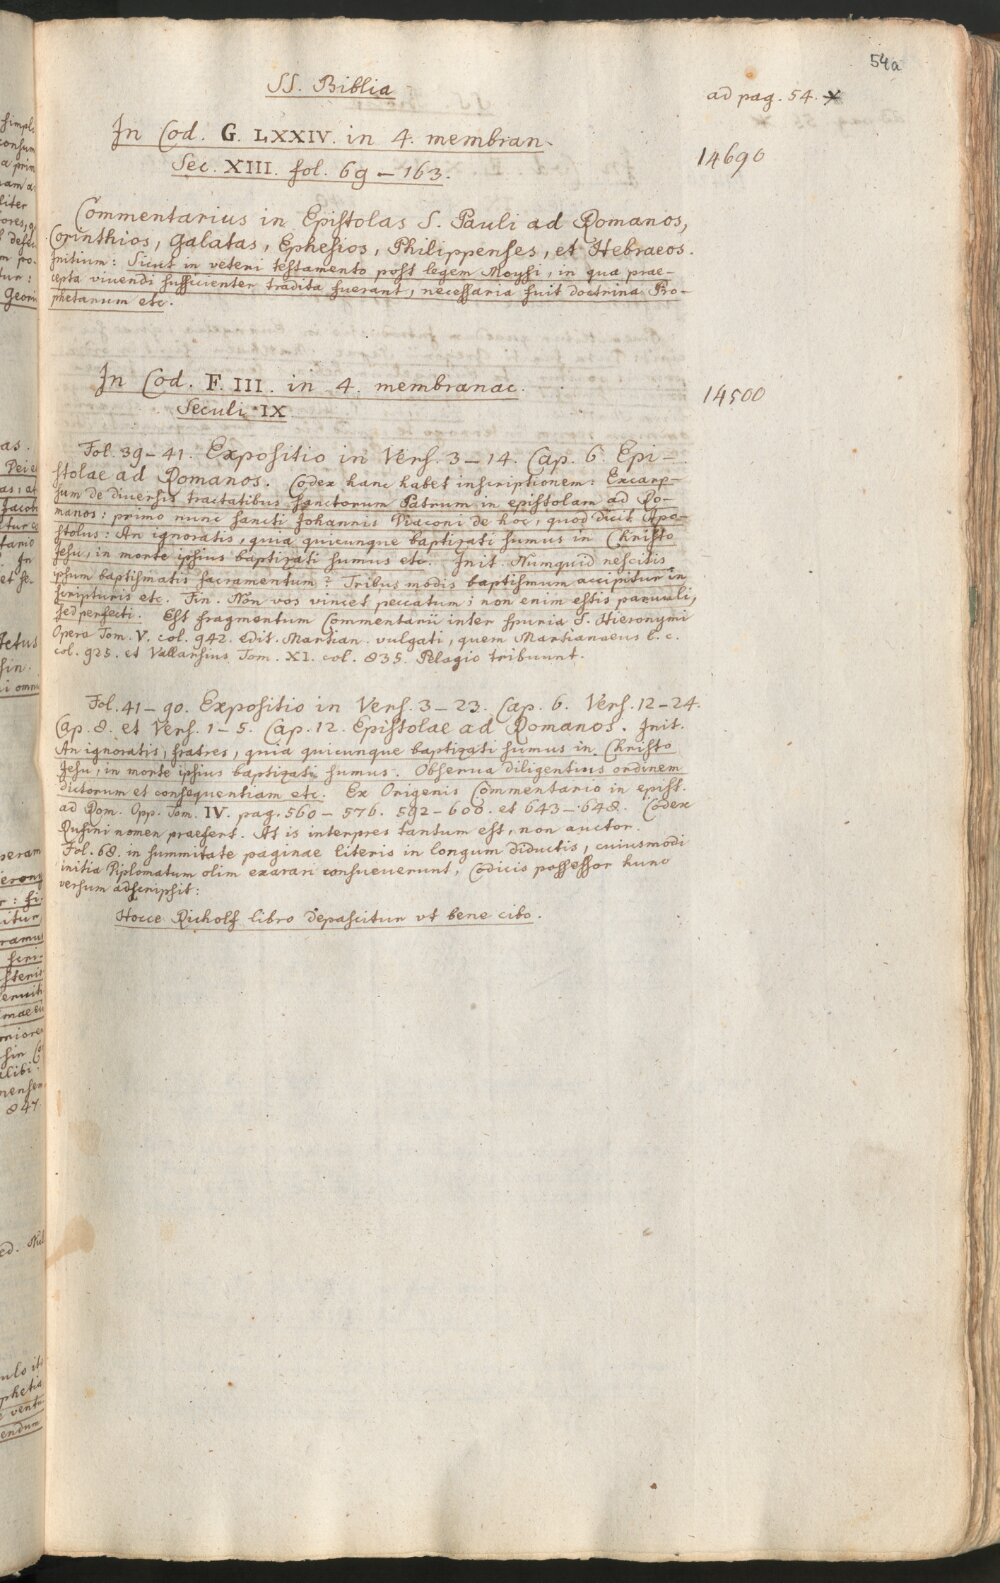 54a
SS. Biblia
ad pag. 54.
In Cod. G. LXXIV. in 4. membran.
14690
Sec. XIII. fol. 69 – 163.
Commentarius in Epistolas S. Pauli ad Romanos,
Corinthios, Galatas, Ephesios, Philippenses, et Hebraeos.
Initium: Sicut in veteri testamento post legem Moysi, in qua prae-
cepta viuendi sufficienter tradita fuerant, necessaria fuit doctrina Pro-
phetarum etc.
In Cod. F. III. in 4. membranac.
14500
Seculi IX
Fol. 39 – 41. Expositio in Vers. 3 – 14. Cap. 6. Epi-
stolae ad Romanos. Codex hanc habet inscriptionem: Excarp-
sum de diversis tractatibus sanctorum Patrum in epistolam ad Ro-
manos: primo nunc sancti Johannis Diaconi de hoc, quod dicit Apo-
stolus: An ignoratis, quia quicunque baptizati sumus in Christo
Jesu, in morte ipsius baptizati sumus etc. Init. Numquid nescitis
ipsum baptismatis sacramentum? Tribus modis baptismum accipitur in
scripturis etc. Fin. Non vos vincet peccatum; non enim estis paruuli,
sed perfecti. Est fragmentum Commentarii inter spuria S. Hieronymi
Opera Tom. V. col. 942. edit. Martian. vulgati, quem Martianaeus l. c.
col. 925. et Vallarsius Tom. XI. col. 835. Pelagio tribuunt.
Fol. 41 – 90. Expositio in Vers. 3 – 23. Cap. 6. Vers. 12 – 24.
Cap. 8. et Vers. 1 – 5. Cap. 12. Epistolae ad Romanos. Init.
An ignoratis, fratres, quia quicunque baptizati sumus in Christo
Jesu, in morte ipsius baptizati sumus. Obserua diligentius ordinem
dictorum et consequentiam etc. Ex Origenis Commentario in epist.
ad Rom. Opp. Tom. IV. pag. 560 – 576. 592 – 600. et 643 – 648. Codex
Rufini nomen praefert. At is interpres tantum est, non auctor.
Fol. 68. in summitate paginae literis in longum diductis, cuiusmodi
initia Diplomatum olim exarari consueuerunt, Codicis possessor hunc
versum adscripsit:
Hocce Richolf libro depascitur vt bene cibo.